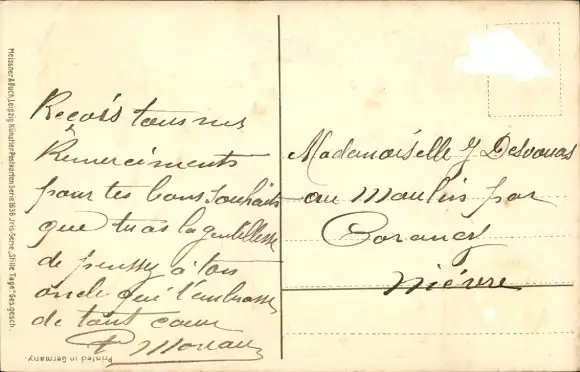 Reçois tous mes
Remerciments
pour tes bons souhaits
que tu as la gentillesse
de penssez à ton
oncle qui t'embrasse
de tout cœur
P Moreau
Mademoiselle J Desvouas
au Moulin par
Corancy
Nièvre
Meissner & Buch, Leipzig. Künstler-Postkarten Serie 1636 Jris-Serie „Stille Tage." Ges. gesch.
Printed in Germany.